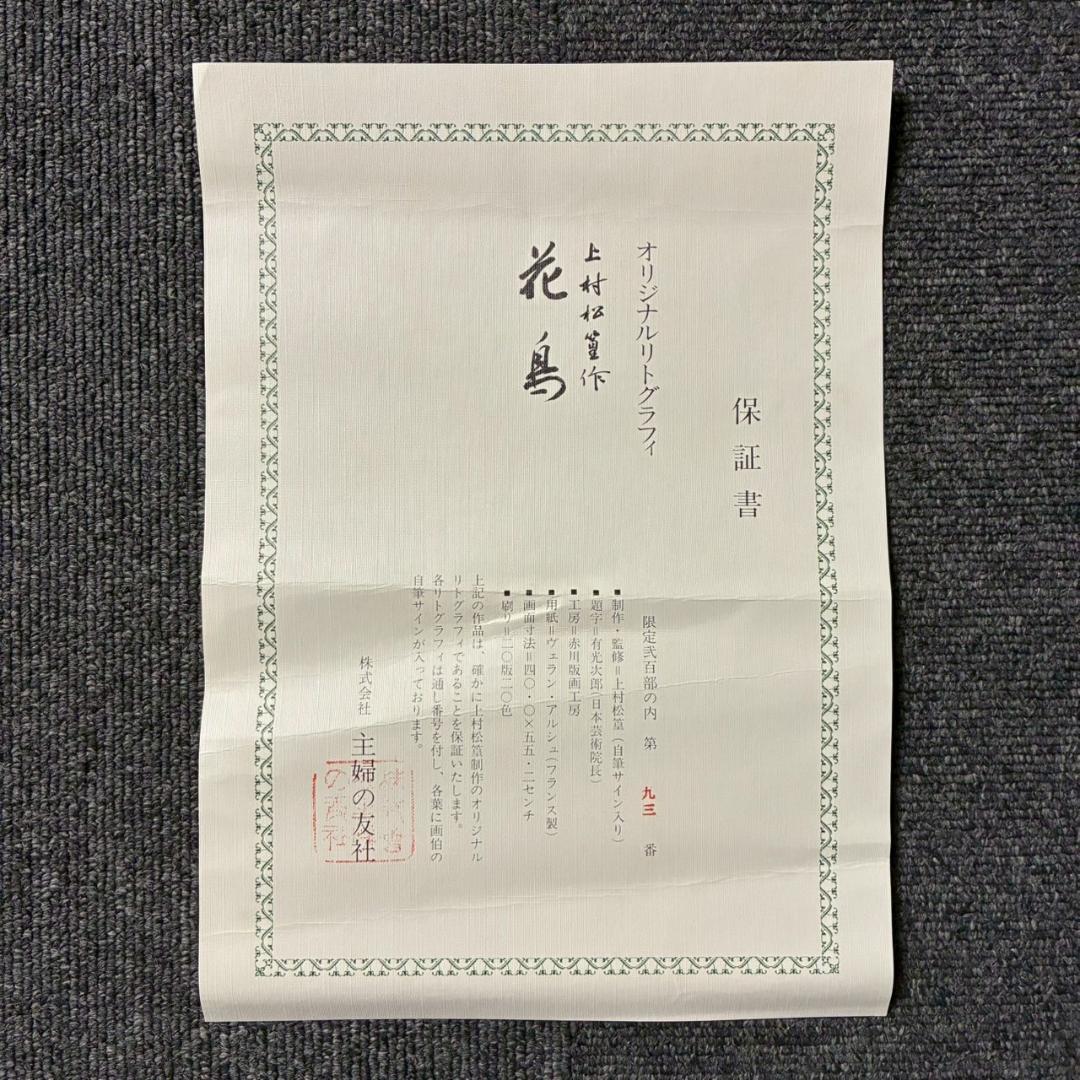 保証書
オリジナルリトグラフィ
上村松篁作
花鳥
限定弐百部の内 第 九三 番
■制作・監修＝上村松篁（自筆サイン入り）
■題字＝有光次郎（日本芸術院長）
■工房＝赤川版画工房
■用紙＝ヴェラン・アルシュ（フランス製）
■画面寸法＝四〇・〇×五五・二センチ
■刷り＝二〇版二〇色
上記の作品は、確かに上村松篁制作のオリジナル
リトグラフィであることを保証いたします。
各リトグラフィは通し番号を付し、各葉に画伯の
自筆サインが入っております。
株式会社 主婦の友社